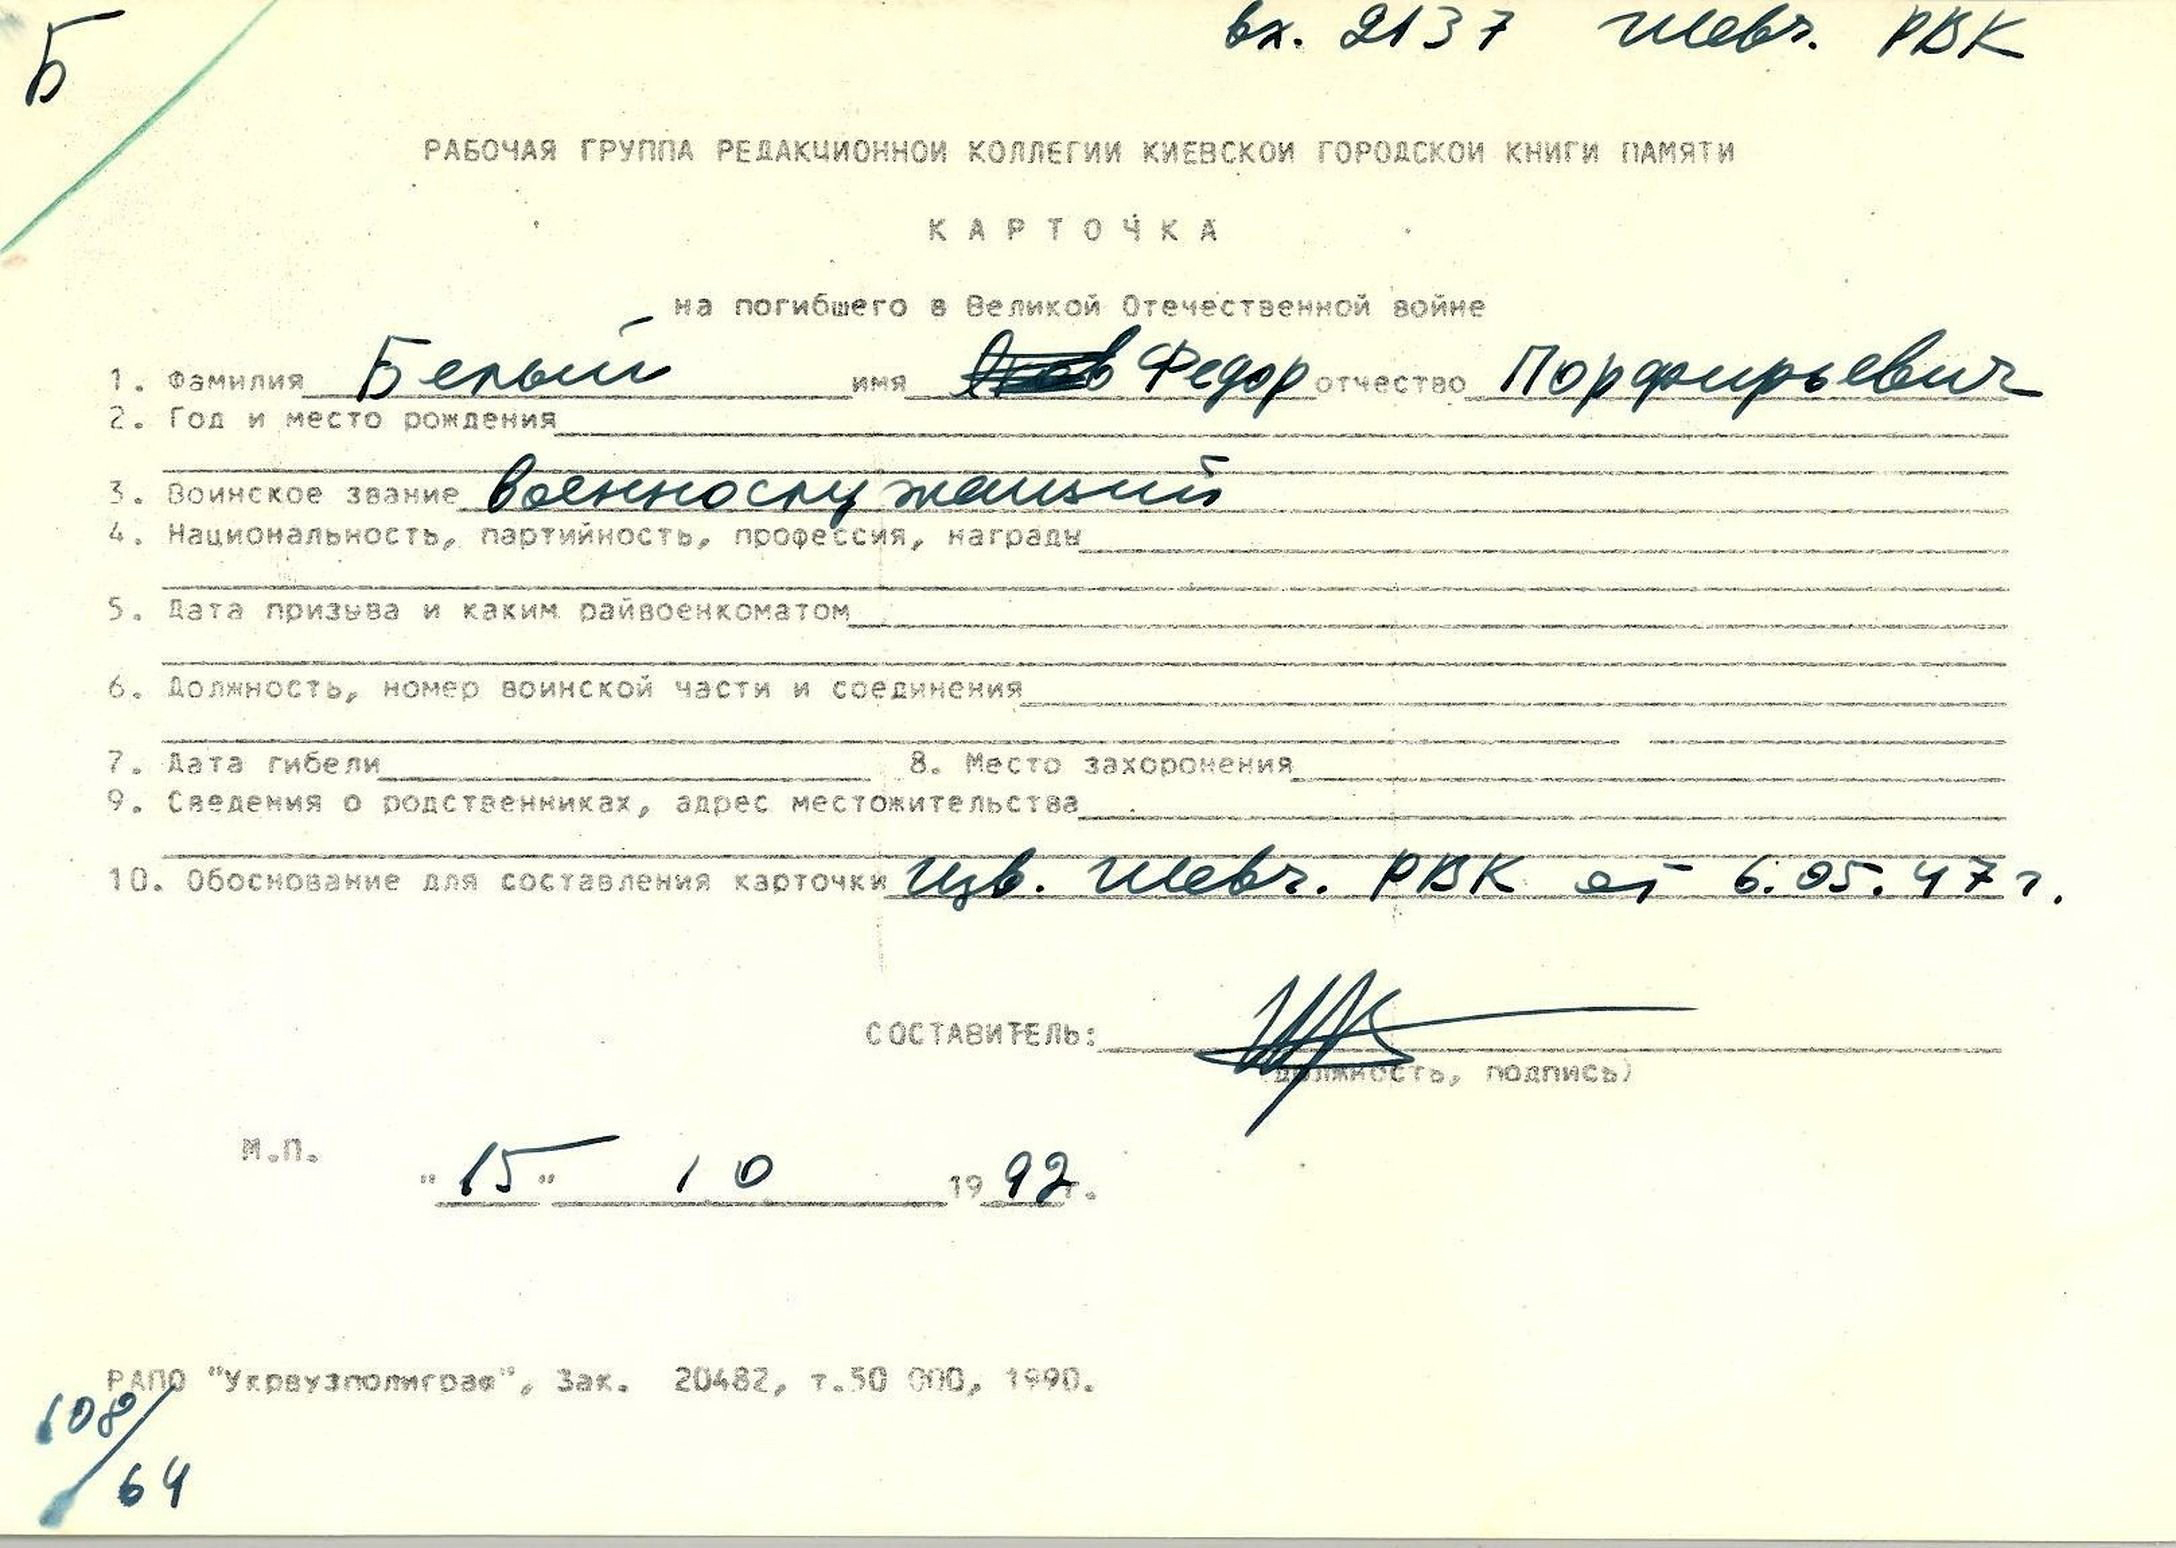 Б
вх. 2137 Шевч. РВК
РАБОЧАЯ ГРУППА РЕДАКЦИОННОЙ КОЛЛЕГИИ КИЕВСКОЙ ГОРОДСКОЙ КНИГИ ПАМЯТИ
КАРТОЧКА
на погибшего в Великой Отечественной войне
1. Фамилия Белый имя Федор отчество Порфирьевич
2. Год и место рождения
3. Воинское звание военнослужащий
4. Национальность, партийность, профессия, награды
5. Дата призыва и каким райвоенкоматом
6. Должность, номер воинской части и соединения
7. Дата гибели 8. Место захоронения
9. Сведения о родственниках, адрес местожительства
10. Обоснование для составления карточки изв. Шевч. РВК от 6.05.47 г.
СОСТАВИТЕЛЬ:
должность, подпись)
М.П.
"15" 10 1992г.
РАПО "Укрвузполиграф", Зак. 20482, т.50 000, 1990.
108/
64